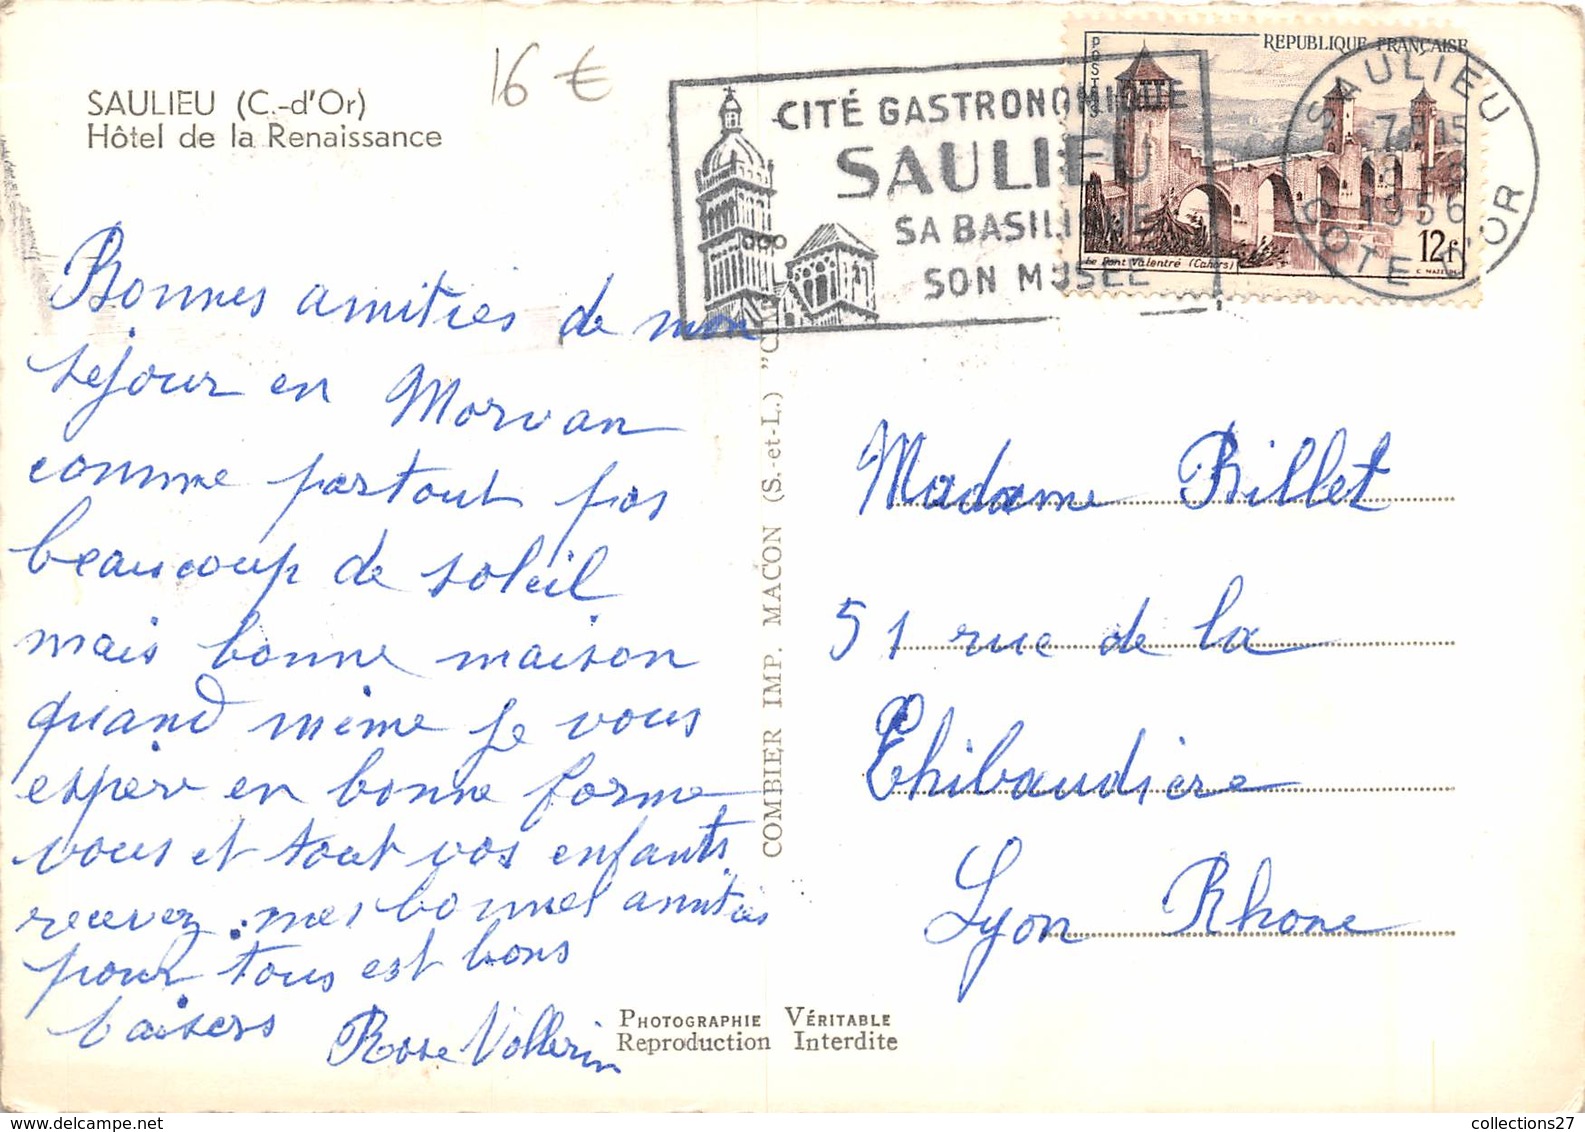 SAULIEU (C.-d'Or)
Hôtel de la Renaissance
16 €
CITÉ GASTRONOMIQUE
SAULIEU
SA BASILIQUE
SON MUSÉE
REPUBLIQUE FRANÇAISE
POSTES
Le Pont Valentré (Cahors)
12f
SAULIEU
1956
COTE D'OR
Bonnes amitiés de mon
séjour en Morvan
comme partout pas
beaucoup de soleil
mais bonne maison
quand même je vous
espère en bonne forme
vous et tout vos enfants
recevez mes bonnes amitiés
pour tous est bons
baisers Rose Vollerin
COMBIER IMP. MACON (S.-et-L.)
Madame Billet
51 rue de la
Thibaudière
Lyon Rhone
PHOTOGRAPHIE VÉRITABLE
Reproduction Interdite
collections27